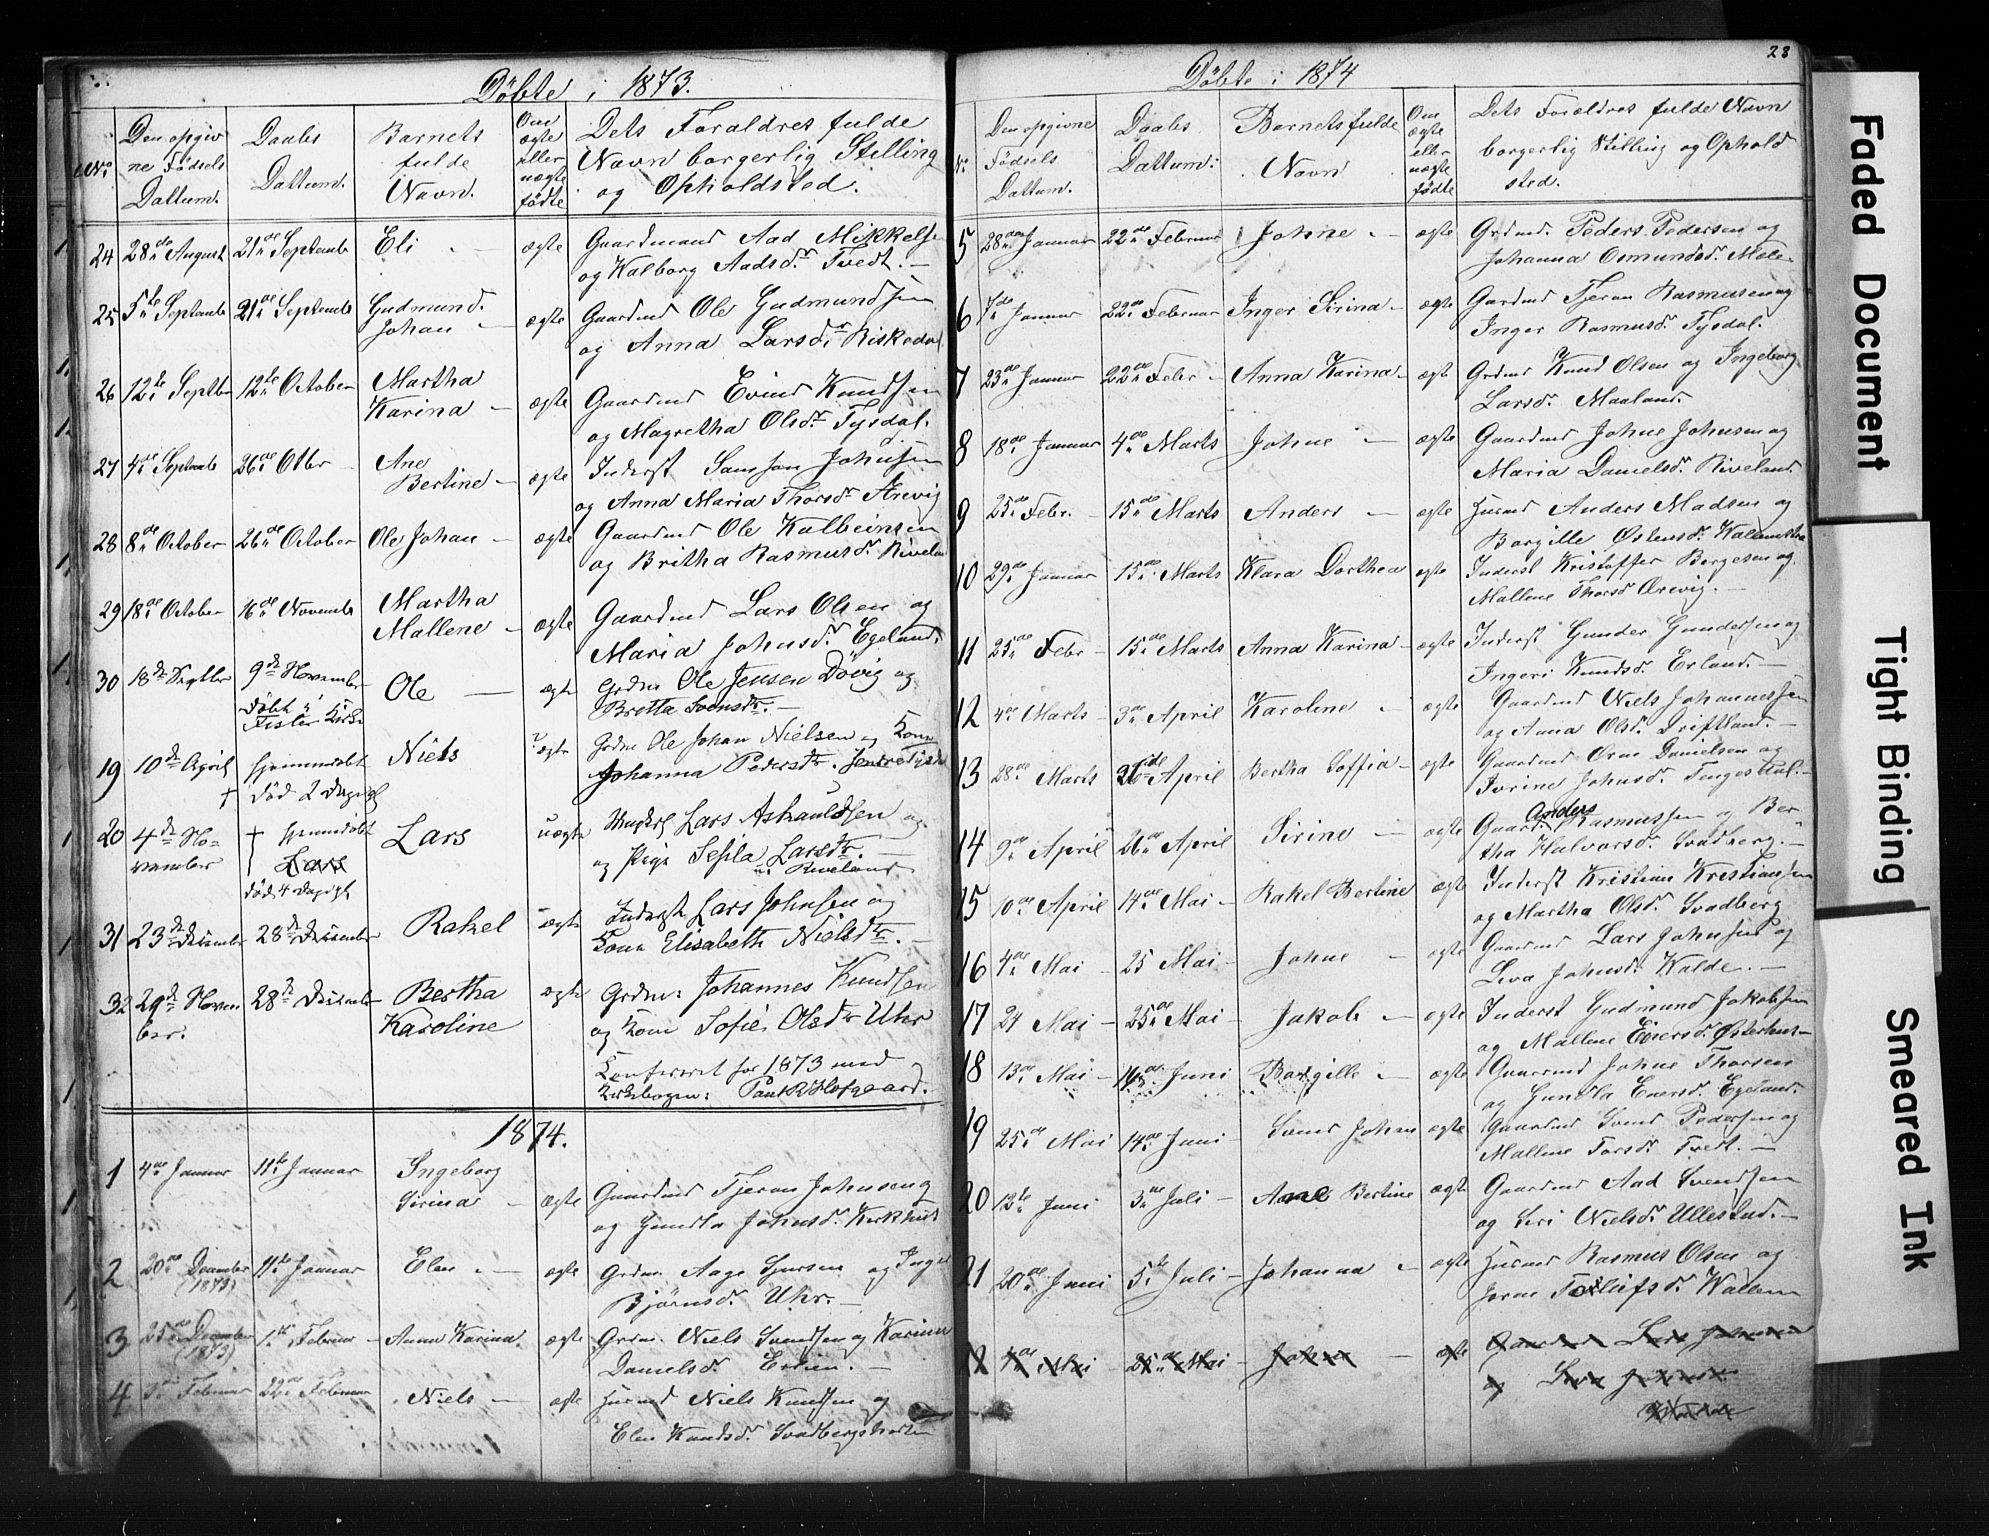 Döbte i 1873.
No
Den opgiv
ne Födsels
Dattum.
Daabs
Dattum.
Barnets
fulde
Navn.
Om
ægte
eller
uægte
födte
Dets Foraldres fulde
Navn borgerlig Stilling
og Opholdsted.
24 28de August 21de Septembr Eli ægte Gaardmand Aad Mikkelsen
og Walborg Aadsdr Tvedt.
25 5te Septembr 21de Septembr Gudmund Johan ægte Gaardmd Ole Gudmundsen
og Anna Larsdr Riskedal
26 12te Septbr 12te October Martha Karina ægte Gaardmd Evind Knudsen
og Magretha Olsdr Tysdal.
27 4de Septembr 26de Otbr Ane Bertine ægte Inderst Samson Johnsen
og Anna Maria Thorsdr Arevig
28 8de October 26de October Ole Johan ægte Gaardmd Ole Kalbeinsen
og Britha Rasmusdr Riveland
29 18de October 16de Novembr Martha Mallene ægte Gaardmd Lars Olsen og
Maria Johnsdr Egeland.
30 18de Septbr 9de November Döbt i Fister Kirke Ole ægte Grdm Ole Jensen Dövig og
Bretta Svensdtr.
19 10de April Hjemmedöbt död 2 Dage gl Niels ægte Grdm Ole Johan Nielsen og Kone
Johanna Pedersdtr.
20 4de November Hjemmedöbt Lars död 4 Dage gl Lars uægte Ungkarl Lars Ashauldsen og
Pige Sesila Larsdtr.
Riveland
31 23de December 28de December Rakel ægte Inderst Lars Johnsen og
Kone Elisabeth Nielsdtr.
32 29de Novenber. 28de Decembr Bertha Karoline ægte Grdm: Johannes Knudsen
og Kone Sofie Olsdtr Uhr
Confereret for 1873 med
Kirkebogen: Paul Hofgaard.
1874.
1 4de Januar 11te Januar Ingeborg Sirina ægte Gaardmd Tjeran Johnsen og
og Gundla Johnsdr Kirkhus
2 20de December (1873) 11te Januar Elen ægte Grdm. Aage Sjursen og Inger
Bjørnsdr. Uhr.
3 25de December (1873) 1te Februar Anna Karina. ægte Grdm. Niels Svendsen og Karina
Danielsdr.
4 Februar 22de Februar Niels ægte Husmd Niels Knudsen og
Elen Knudsdr. Svadbergsholten
28
Döbte i 1874
No.
Den opgivne
Födsels
Dattum.
Daabs
Dattum.
Barnets fulde
Navn
Om
ægte
eller
uægte
födte
Dets Forældres fulde Navn
borgerlig Stilling og Ophold
sted.
5 28de Januar 22de Februar Johne ægte Grdmd. Peders Pedersen og
Johanna Osmundsdr. Mæle.
6 7de Januar 22de Februar Inger Sirina ægte Gardmd Tjeran Rasmusen og
Inger Rasmusdr. Tysdal.
7 23de Januar 22de Febr Anna Karina ægte Grdmd Knud Olsen og Ingeborg
Larsdr. Maaland.
8 18de Januar 4de Marts Johne ægte Gaardmd Johne Johnsen og
Maria Danielsdr. Riveland.
9 25de Febr. 15de Marts Anders ægte Husmd Anders Madsen og
Borgille Østensdr.
10 29de Januar 15de Marts Klara Dorthea ægte Inderst Kristoffer Børgesen og
Mallene Thorsdr Ørevig.
11 25de Febr 15de Marts Anna Karina ægte Inderst Gunder Gundersen og
Ingeri Knudsdr. Erland.
12 4de Marts 3de April Karoline ægte Gaardmd Niels Johannessen
og Anna Olsdr. Driftland.
13 28de Marts April Bertha Soffia ægte Gaardmd Orm Danielsen og
Ivrine Johnsdr. Tengesdal.
14 9de April 26de April Sirine ægte Gaard. Anders Rasmussen og Ber-
tha Halvorsdr. Svadberg.
15 10de April 14de Mai Rakel Bertine ægte Inderst Kristian Kristiansen
og Martha Olsdr. Svadberg
16 4de Mai 25 Mai Johne ægte Gaardmd Lars Johnsen og
Siva Johnsdr. Walde.
17 24 Mai 25de Mai Jakob ægte Inderst Gudmund Jakobsen
og Mallene Einersdr. Østerhus
18 13de Mai 14de Juni Borgille ægte Gaardmd Johne Thorsen
og Gundla Enersdr. Egeland.
19 25de Mai 14de Juni Svend Johan ægte Gaardmd Svend Pedersen og
Mallene Torsdr. Tvedt.
20 13te Juni 3de Juli Aane Bertine ægte Gaardmd Aad Svendsen
og Siri Nielsdr. Ullestad.
21 20de Juni 5te Juli Johanna ægte Husmd Rasmus Olsen og
Joren Tollifsdr. Wallem
4de Mai 25de Mai Johne ægte Gaardmd Lars Johnsen
og Siva
Faded Document
Tight Binding
Smeared Ink